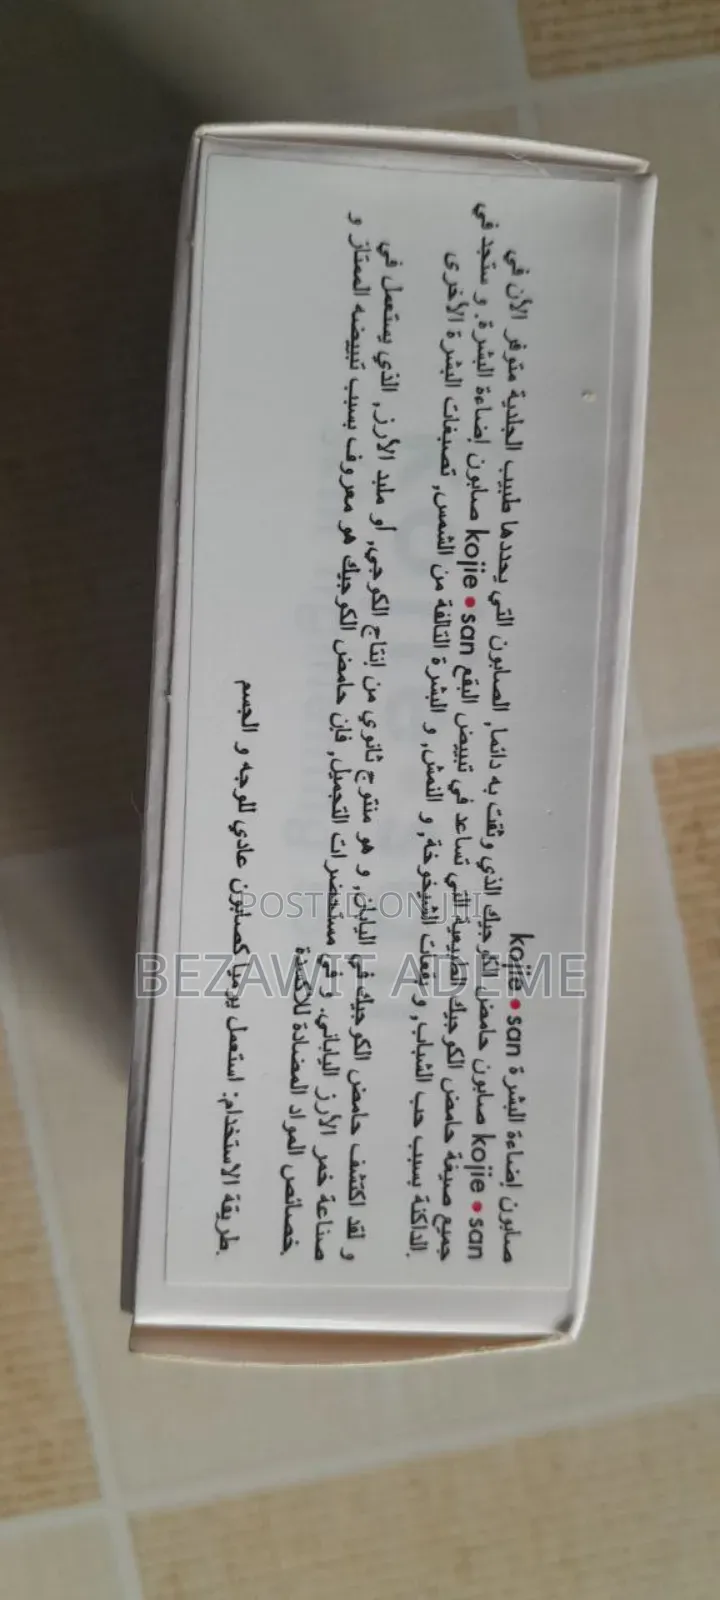 صابون إضاءة البشرة kojie • san
kojie • san صابون حامض الكوجيك الذي وثقت به دائما, الصابون التي يحددها طبيب الجلدية متوفر الأن في
جميع صيغة حامض الكوجيك الطبيعية التي تساعد في تبييض البقع kojie • san صابون إضاءة البشرة. و ستجد في
الداكنة بسبب حب الشباب, و بقعات الشيخوخة, و النمش, و البشرة التالفة من الشمس, تصبغات البشرة الأخرى.
و لقد اكتشف حامض الكوجيك في اليابان, و هو منتوج ثانوي من إنتاج الكوجي, أو ملبد الأرز, الذي يستعمل في
صناعة خمر الأرز الياباني. و في مستحضرات التجميل, فإن حامض الكوجيك هو معروف بسبب تبييضه الممتاز و
خصائص المواد المضادة للأكسدة.
طريقة الاستخدام: استعمل يوميا كصابون عادي للوجه و الجسم.
POSTED ON JIJI
BEZAWIT ADEME